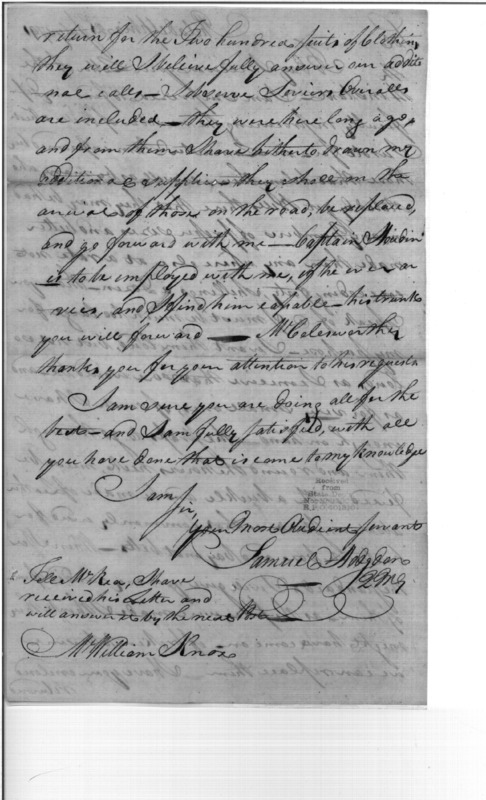 return for the Two hundred suits of Clothing
they will I beleive fully answer our additi
nal calls – I observe Seviers Overalls
are included – they were here long ago,
and from them I have hitherto drawn my
additional supplies – they shall on the
arrival of those on the road, be replaced,
and go forward with me – Captain
is to be employed with me, if he ever ar
rives, and I find him capable – his trunk
you will forward — Mr Colesworthy
thanks you for your attention to his request
I am sure you are doing all for the
best – and I am fully satisfied, with all
you have done that is come to my knowledge
I am
Sir,
your most Obedient servant
Samuel Hodgdon
QMG
Tell Mr Kea, I have
received his Letter and
will answer it by the next Post
Mr William Knox
Received
from